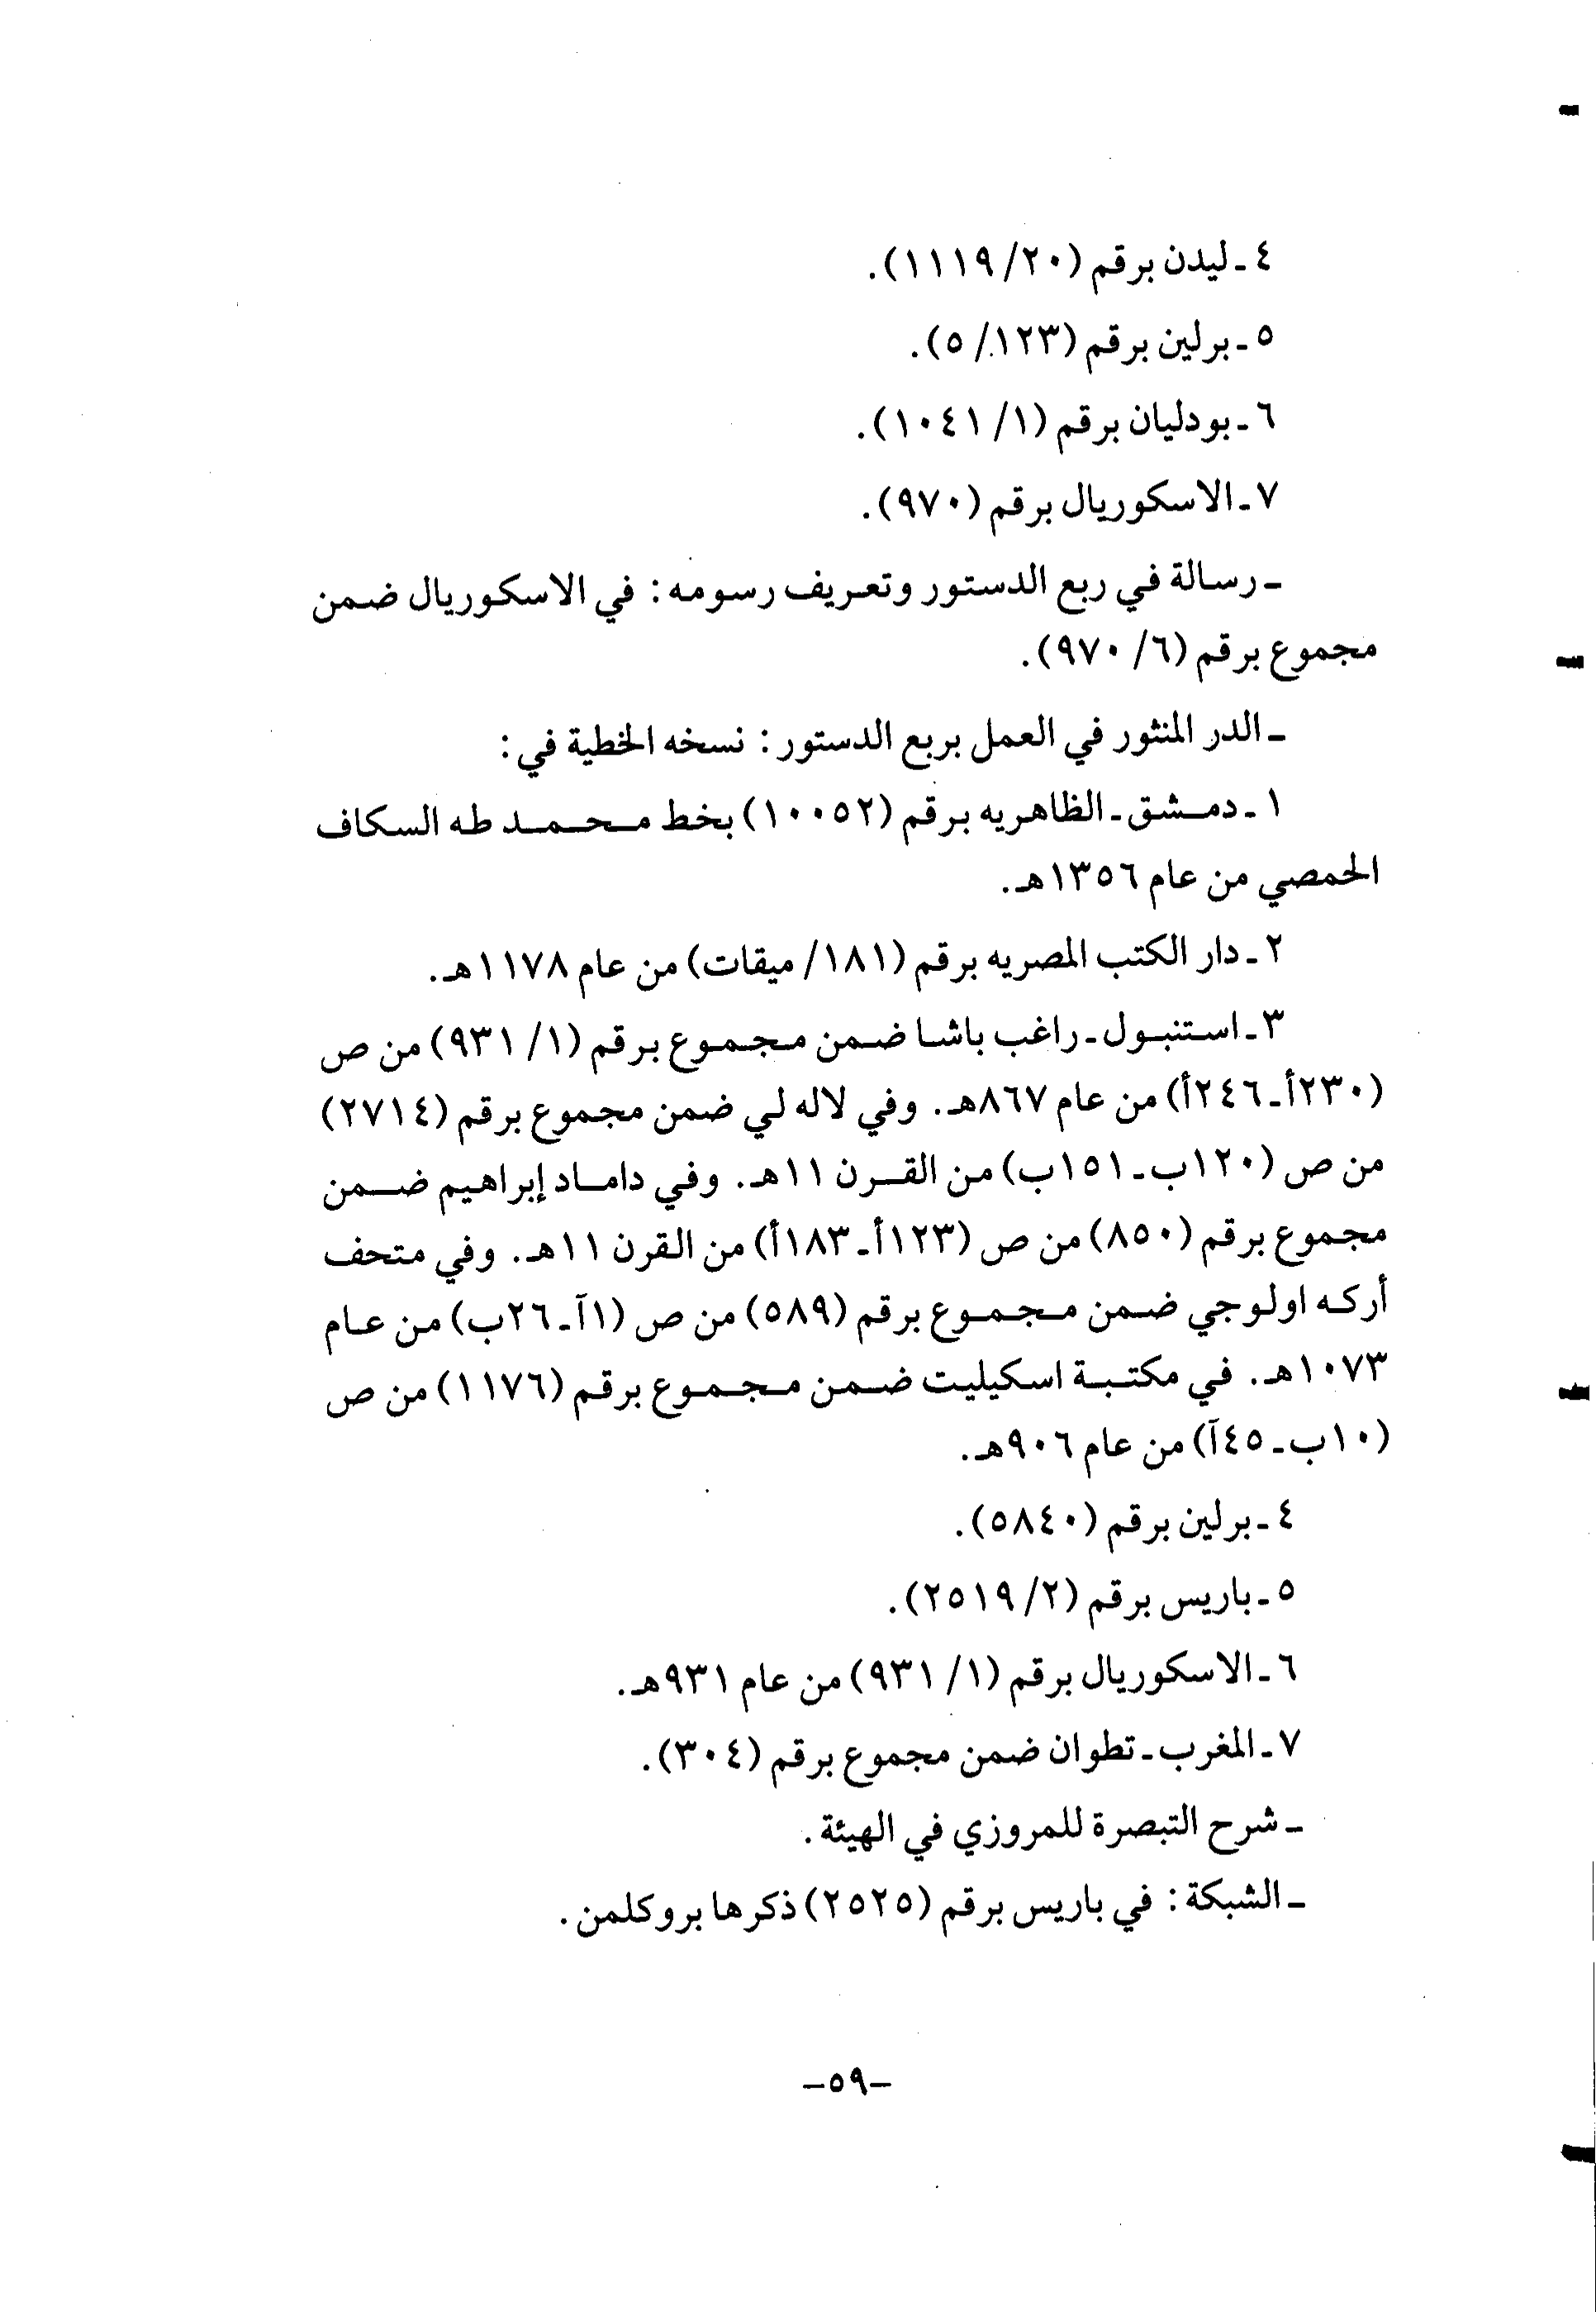 ٤ ـ ليدن برقم (٢٠/ ١١١٩).
٥ ـ برلين برقم (١٢٣/ ٥).
٦ ـ بودليان برقم (١/ ١٠٤١).
٧ ـ الاسكوريال برقم (٩٧٠).
ـ رسالة في ربع الدستور وتعريف رسومه: في الاسكوريال ضمن
مجموع برقم (٦/ ٩٧٠).
ـ الدر المنثور في العمل بربع الدستور: نسخه الخطية في:
١ ـ دمشق ـ الظاهريه برقم (١٠٠٥٢) بخط محمد طه السكاف
الحمصي من عام ١٣٥٦هـ.
٢ ـ دار الكتب المصريه برقم (١٨١/ ميقات) من عام ١١٧٨هـ.
٣ ـ استنبول ـ راغب باشا ضمن مجموع برقم (١/ ٩٣١) من ص
(٢٣٠أ ـ ٢٤٦أ) من عام ٨٦٧هـ. وفي لاله لي ضمن مجموع برقم (٢٧١٤)
من ص (١٢٠ب ـ ١٥١ب) من القرن ١١هـ. وفي داماد إبراهيم ضمن
مجموع برقم (٨٥٠) من ص (١٢٣أ ـ ١٨٣أ) من القرن ١١هـ. وفي متحف
أركه اولوجي ضمن مجموع برقم (٥٨٩) من ص (١آ ـ ٢٦ب) من عام
١٠٧٣هـ. في مكتبة اسكيليت ضمن مجموع برقم (١١٧٦) من ص
(١٠ب ـ ٤٥آ) من عام ٩٠٦هـ.
٤ ـ برلين برقم (٥٨٤٠).
٥ ـ باريس برقم (٢/ ٢٥١٩).
٦ ـ الاسكوريال برقم (١/ ٩٣١) من عام ٩٣١هـ.
٧ ـ المغرب ـ تطوان ضمن مجموع برقم (٣٠٤).
ـ شرح التبصرة للمروزي في الهيئة.
ـ الشبكة: في باريس برقم (٢٥٢٥) ذكرها بروكلمن.
–٥٩–